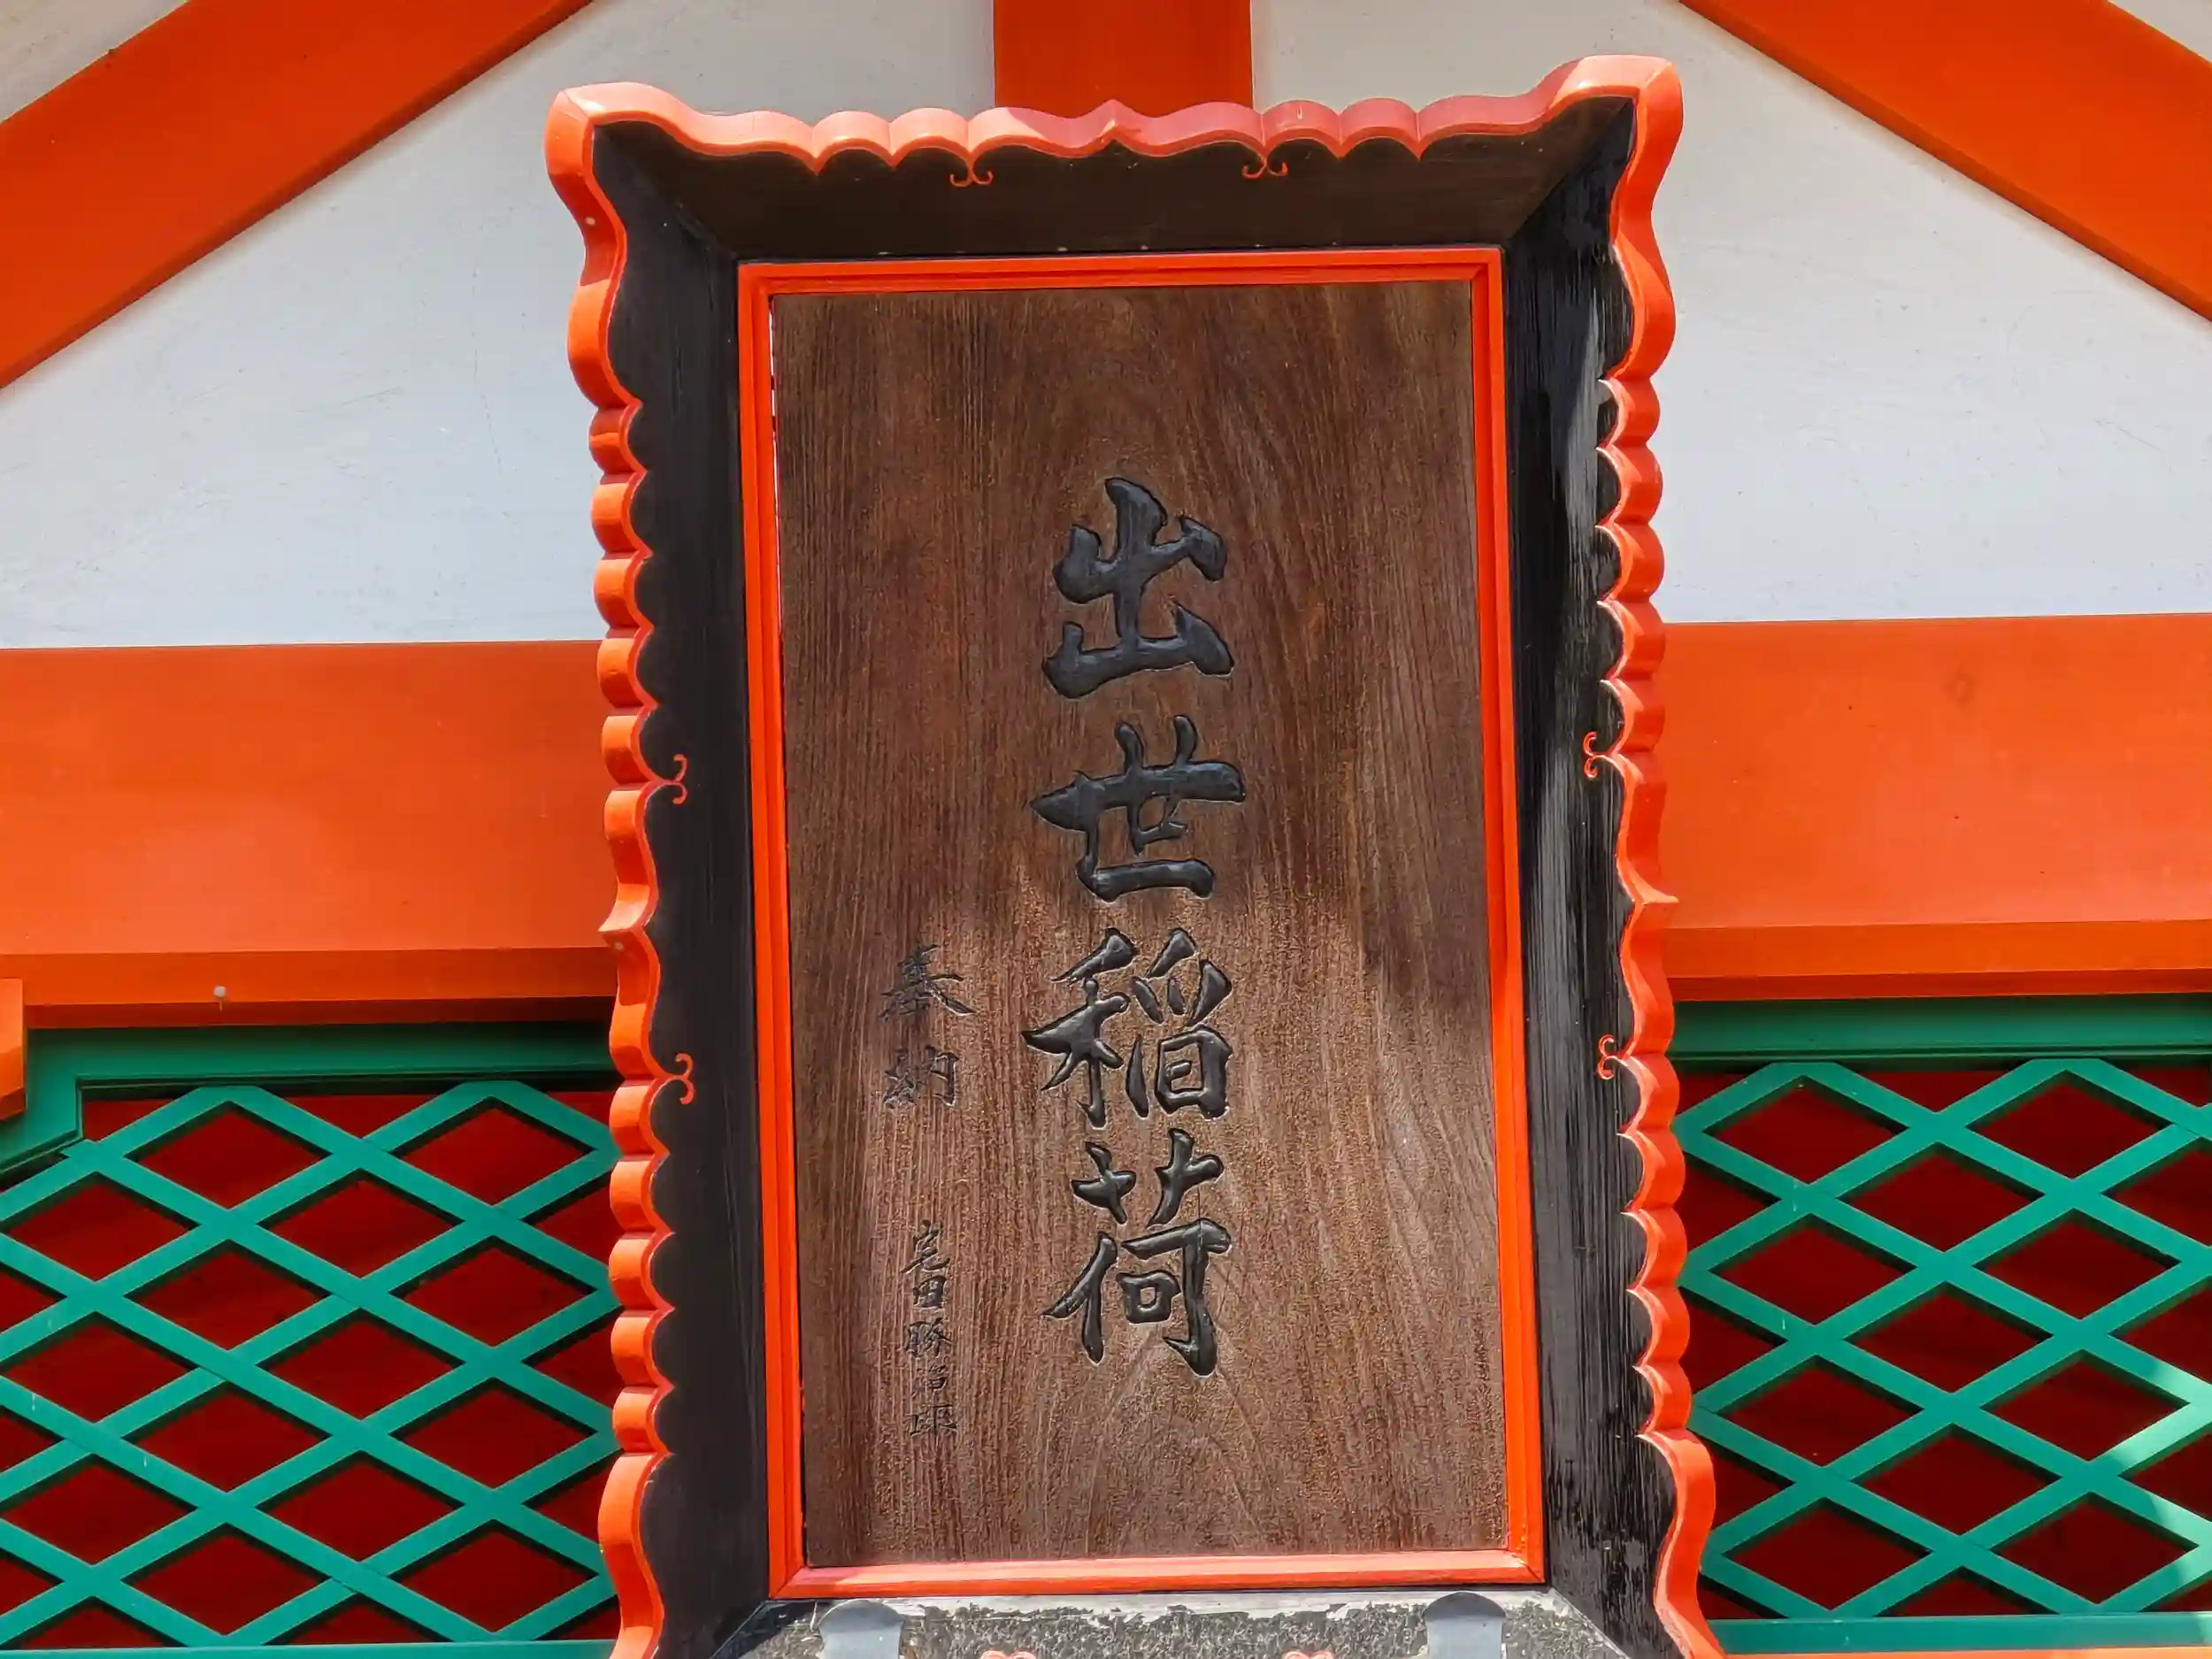 出世稲荷
奉納